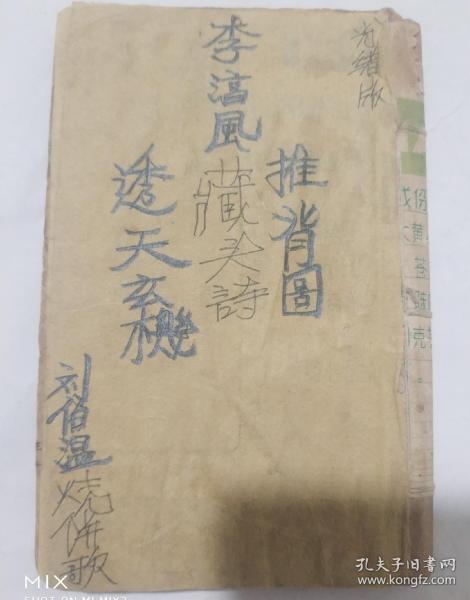 光绪版
推背圖
李淳風
藏头詩
透天玄機
刘伯温烧併歌
MIX
SHOT ON MI MIX2
孔夫子旧书网
www.kongfz.com